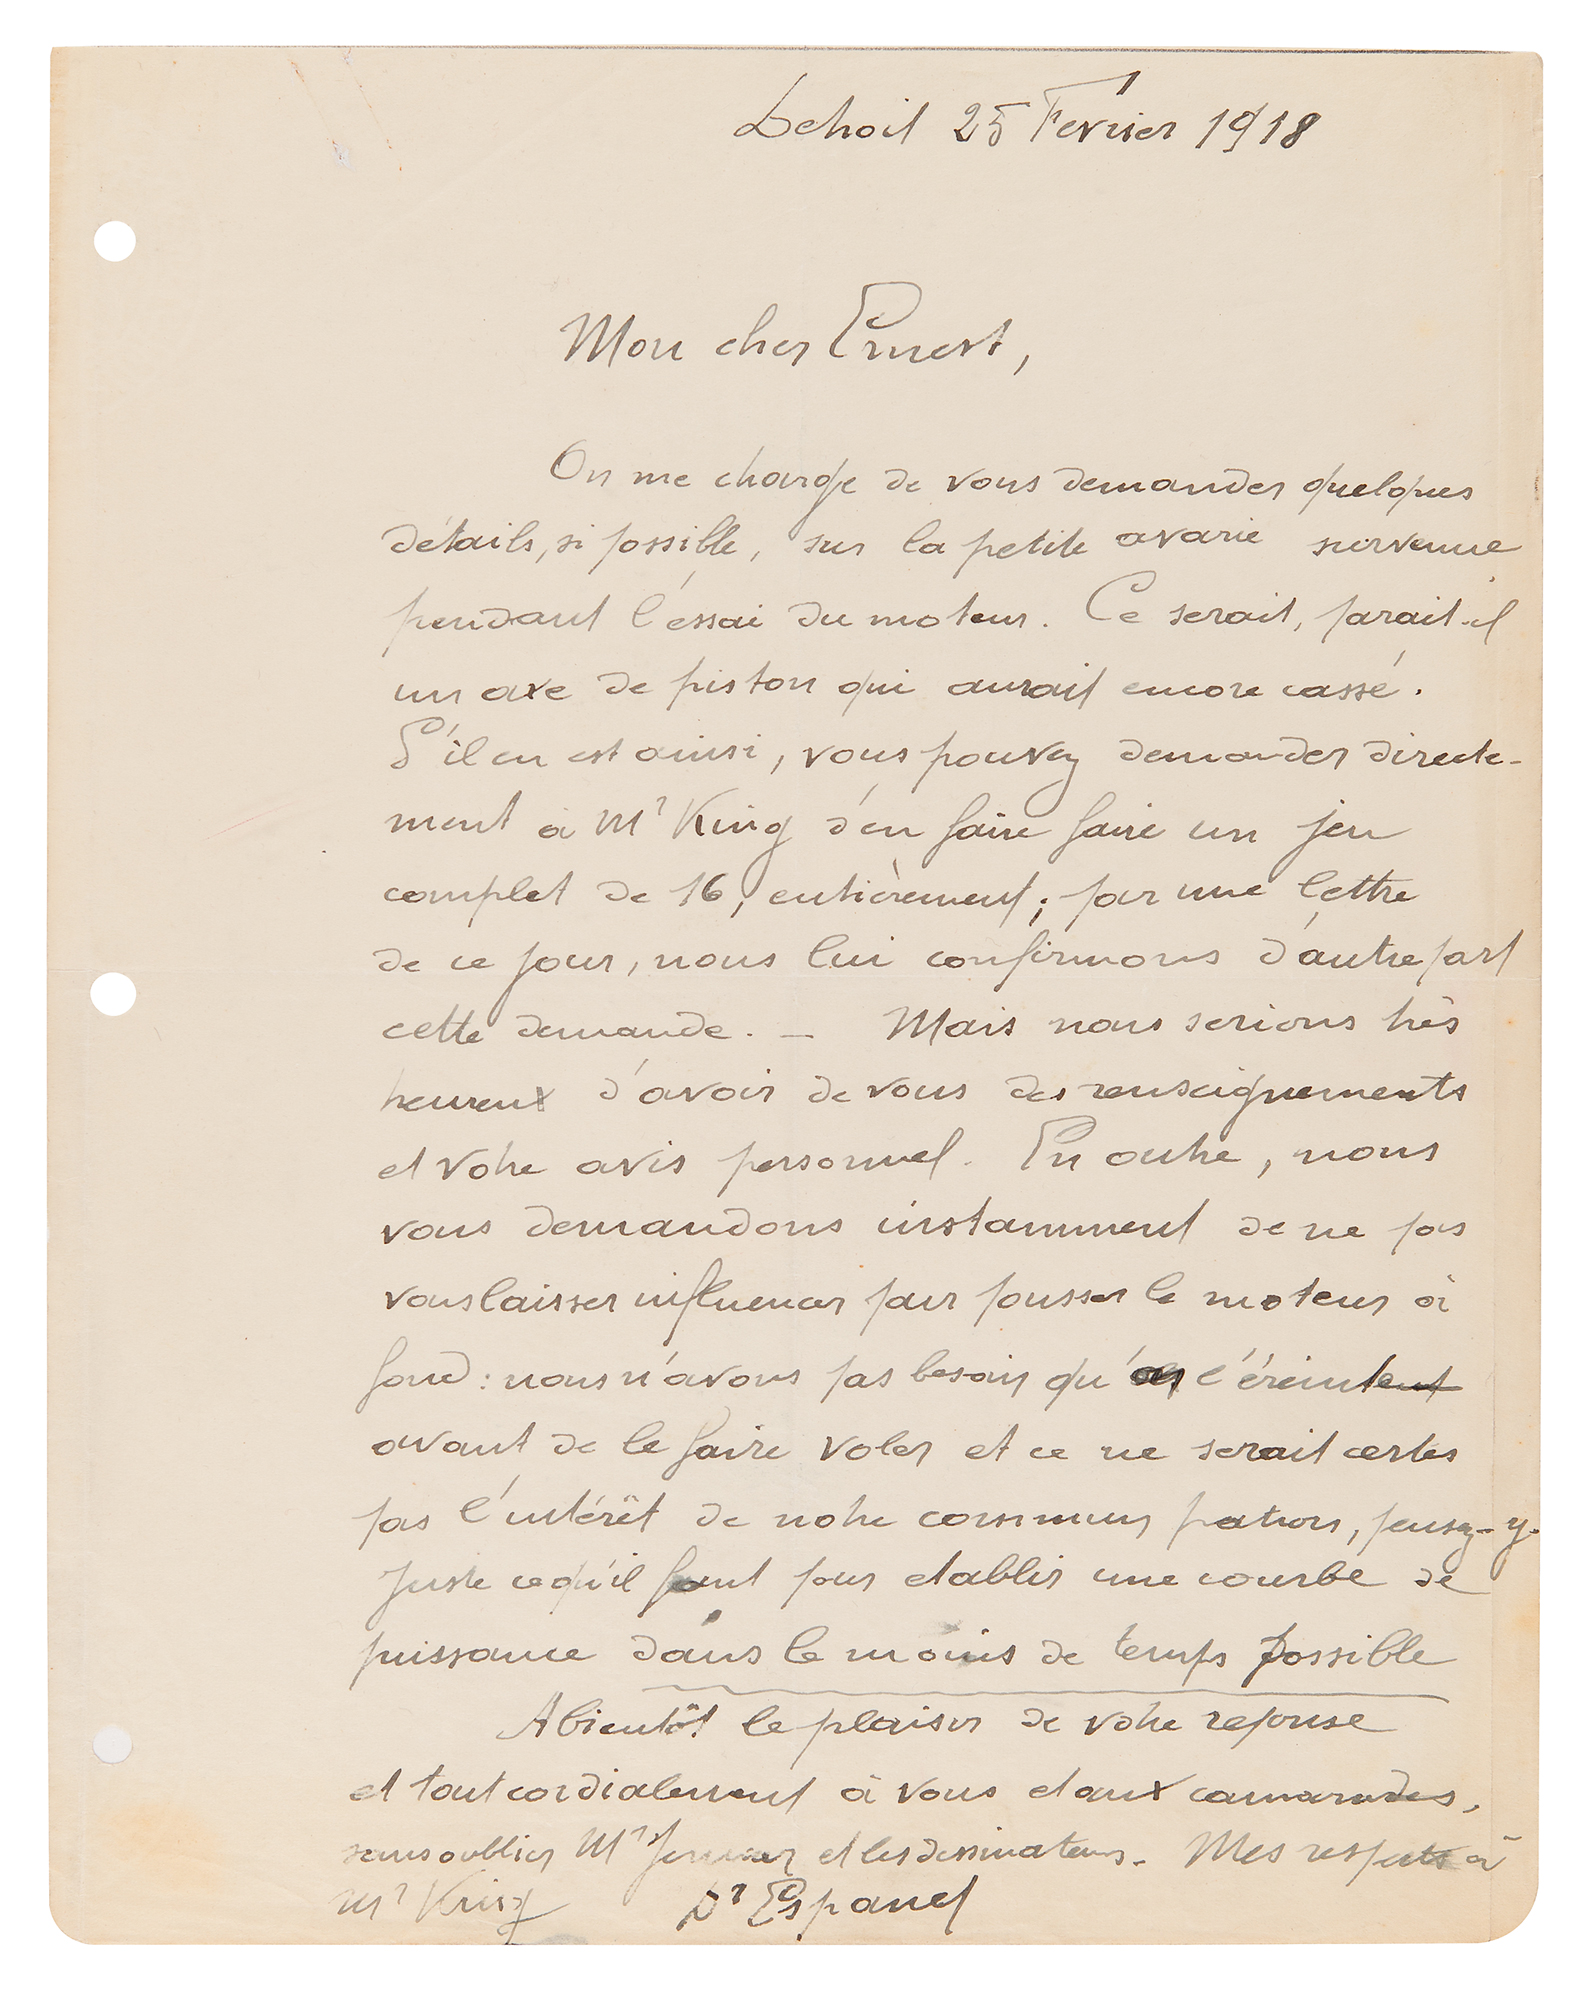 Detroit 25 Fevrier 1918
Mon cher Ernest,
On me charge de vous demander quelques
détails, si possible, sur la petite avarie survenue
pendant l'éssai du moteur. Ce serait, parait-il
un axe de piston qui aurait encore cassé.
S'il en est ainsi, vous pouvez demander directe-
ment à Mr King d'en faire faire un jeu
complet de 16, entièrement; par une lettre
de ce jour, nous lui confirmons d'autre part
cette demande. — Mais nous serions très
heureux d'avoir de vous des renseignements
et votre avis personnel. En outre, nous
vous demandons instamment de ne pas
vous laisser influencer pour pousser le moteur à
fond: nous n'avons pas besoin qu' l'éreintent
avant de le faire voler et ce ne serait certes
pas l'intérêt de notre commun patron, pensez-y.
Juste ce qu'il faut pour etablir une courbe de
puissance dans le moins de temps possible
A bientôt le plaisir de votre reponse
et tout cordialement à vous et aux camarades,
sans oublier Mr et les dessinateurs. Mes respects à
Mr King Dr Espanet